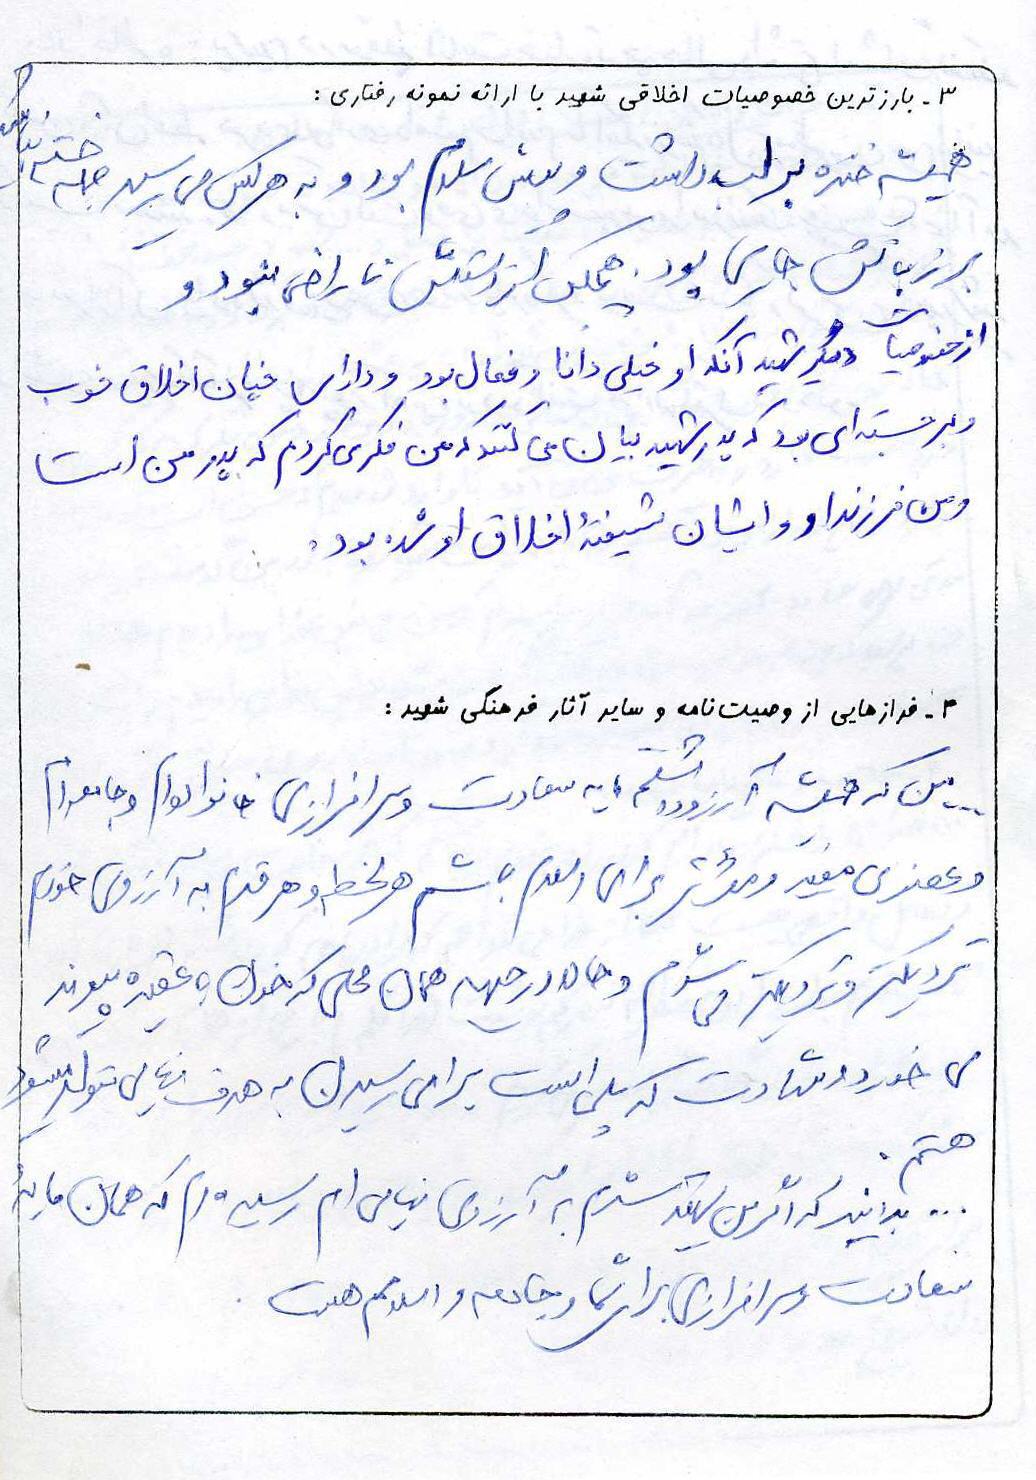 ۳ـ بارزترین خصوصیات اخلاقی شهید با ارائه نمونه رفتاری :
همیشه خنده بر لب داشت و پیش سلام بود و به هر کس می رسید جمله خسته نباشی
بر زبانش جاری بود. هیچکس از دستش ناراضی نبود و
از خصوصیات دیگر شهید آنکه او خیلی دانا و فعال بود و دارای چنان اخلاق خوب
و برجسته‌ای بود که پدر شهید بیان می کنند که من فکر می کردم که پدر من است
و من فرزند او و ایشان شیفتهٔ اخلاق او شده بود.
۴ـ فرازهایی از وصیت‌نامه و سایر آثار فرهنگی شهید :
... من که همیشه آرزو داشتم مایه سعادت و سرافرازی خانواده‌ام و جامعه‌ام
و عنصری مفید و مؤثر برای اسلام باشم هر لحظه و هر قدم به آرزوی خودم
نزدیکتر و نزدیکتر می شدم و حالا در جبهه همان محلی که خون با عقیده پیوند
می خورد و شهادت که پلی است برای رسیدن به هدف نهایی متولد میشود
هستم.
... بدانید که اگر من شهید شدم به آرزوی نهایی ام رسیده ام که همان مایهٔ
سعادت و سرافرازی برای شما و جامعه و اسلام هست .